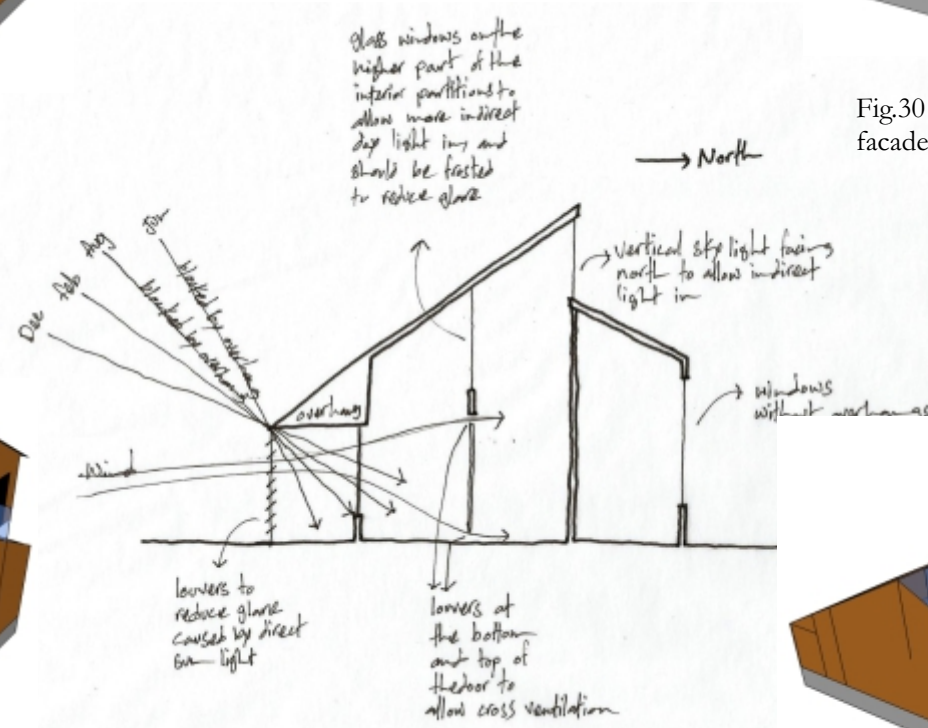 glass windows on the
higher part of the
interior partitions to
allow more indirect
day light in, and
should be frosted
to reduce glare
Fig.30
facade
North
Jun
Aug
Feb
Dec
blocked by overhang
blocked by overhang
vertical sky light facing
north to allow indirect
light in
overhang
windows
without overhangs
Wind
louvers to
reduce glare
caused by direct
sun light
louvers at
the bottom
and top of
the door to
allow cross ventilation